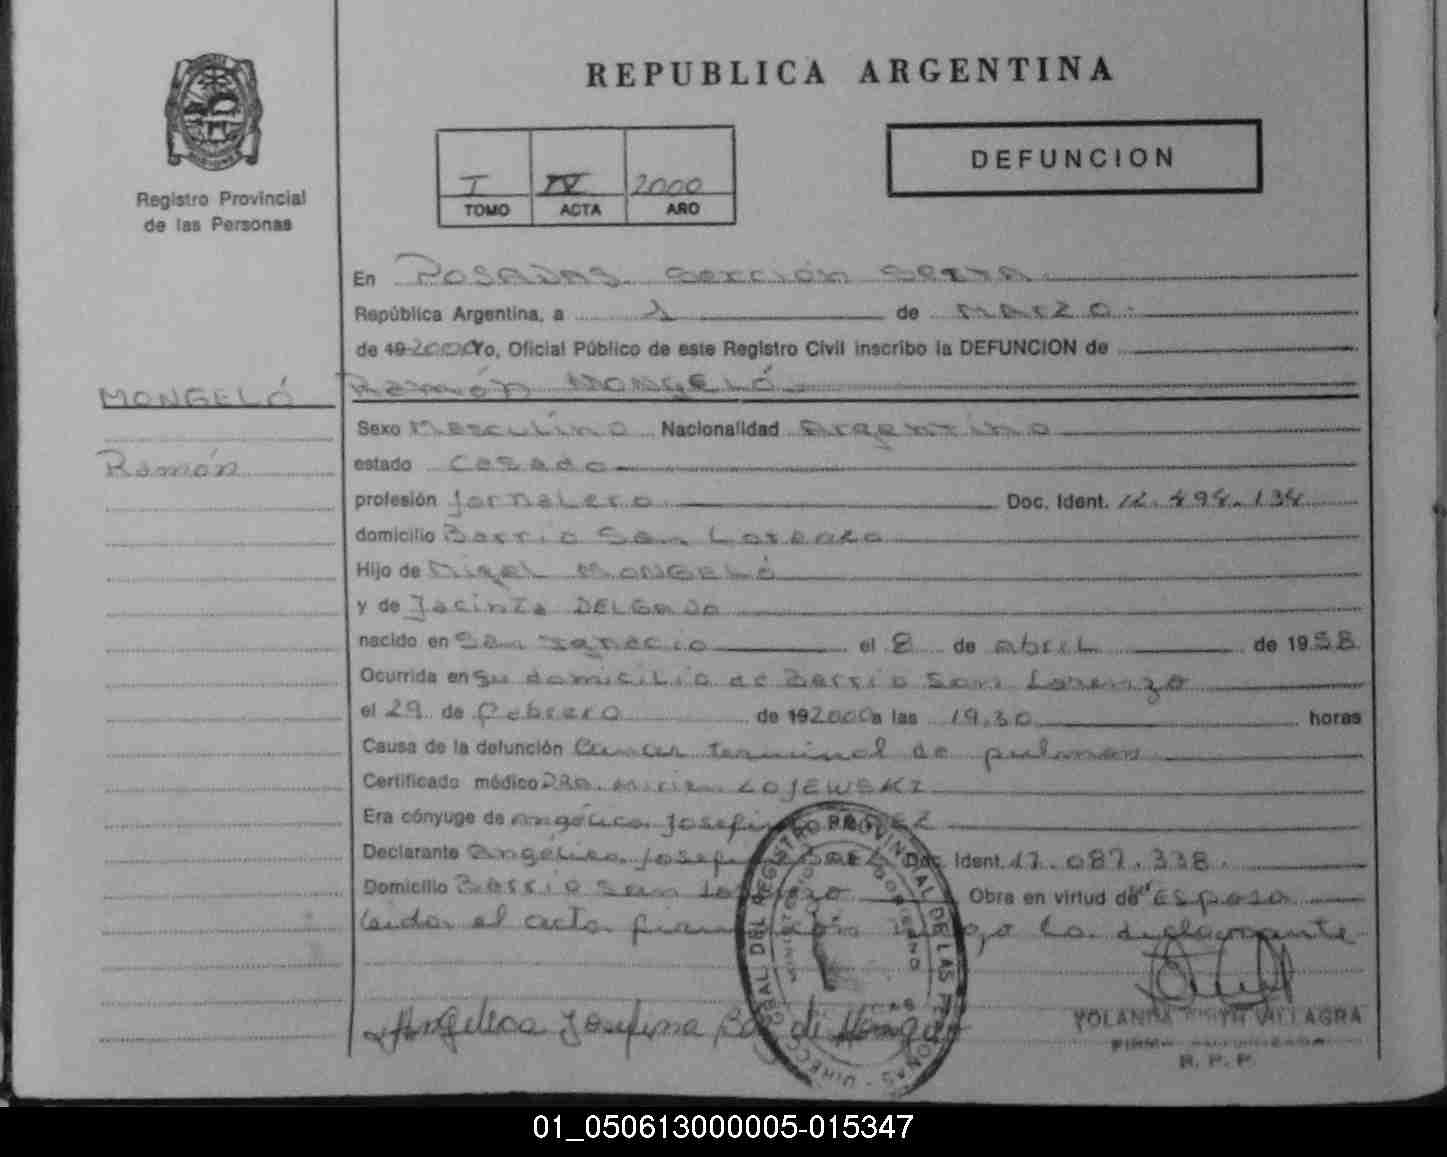 REPUBLICA ARGENTINA
DEFUNCION
Registro Provincial
de las Personas
I IV 2000
TOMO ACTA AÑO
En POSADAS sección sexta
República Argentina, a 1 de MARZO
de 19 2000 Yo, Oficial Público de este Registro Civil inscribo la DEFUNCION de
MONGELÓ Ramón MONGELÓ
Sexo Masculino Nacionalidad Argentino
Ramón estado Casado
profesión Jornalero Doc. Ident. 12.494.134
domicilio Barrio San Lorenzo
Hijo de Migel MONGELÓ
y de Jacinta DELGADO
nacido en San Ignacio el 8 de abril de 1958
Ocurrida en su domicilio de Barrio San Lorenzo
el 29 de febrero de 19 2000 a las 19.30 horas
Causa de la defunción Cancer terminal de pulmon
Certificado médico DRA. LOJEWSKI
Era cónyuge de Angélica Josefina BAEZ
Declarante Angélica Josefina BAEZ Doc. Ident. 17.087.338
Domicilio Barrio San Lorenzo Obra en virtud de Esposa
Leida el acta la declarante
Angelica Josefina Baez de Mongelo
YOLANDA VILLAGRA
FIRMA AUTORIZADA
R. P. P.
DIRECCION GENERAL DEL REGISTRO PROVINCIAL DE LAS PERSONAS
MINISTERIO GOBIERNO
01_050613000005-015347